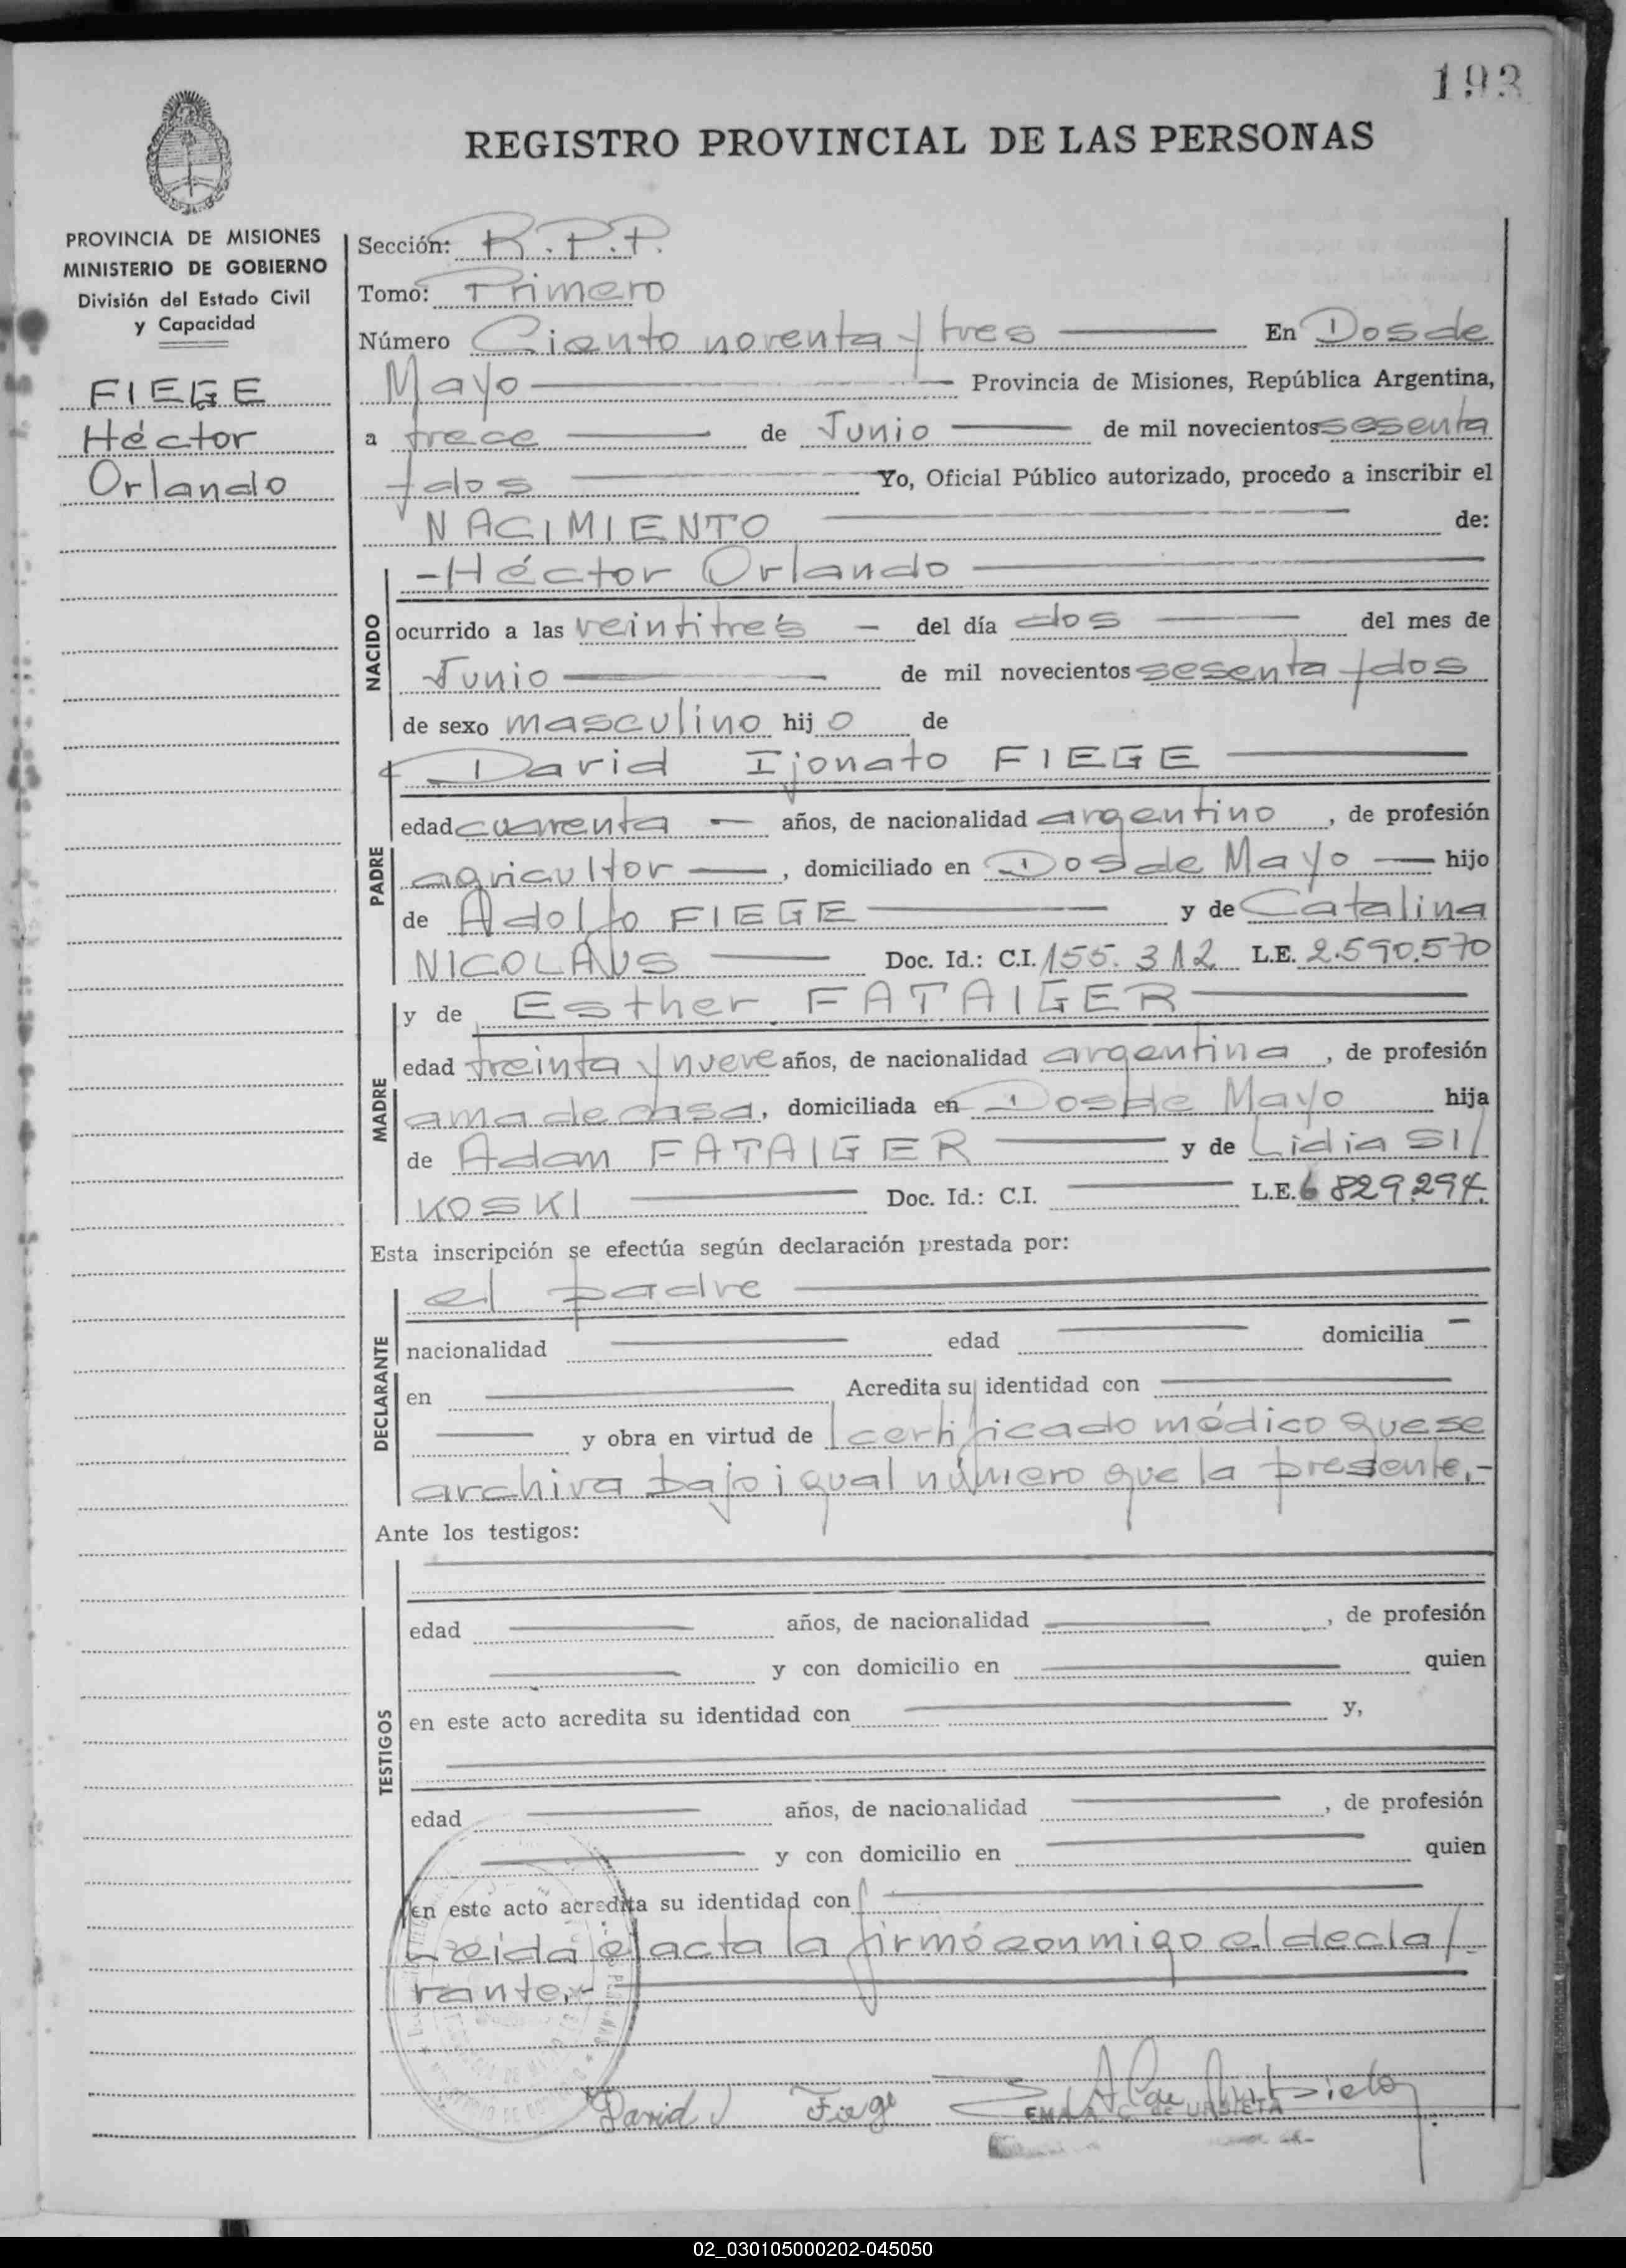 193
REGISTRO PROVINCIAL DE LAS PERSONAS
PROVINCIA DE MISIONES
MINISTERIO DE GOBIERNO
División del Estado Civil
y Capacidad
FIEGE
Héctor
Orlando
Sección: R.P.P.
Tomo: Primero
Número Ciento noventa y tres En Dos de
Mayo Provincia de Misiones, República Argentina,
a trece de Junio de mil novecientos sesenta
y dos Yo, Oficial Público autorizado, procedo a inscribir el
NACIMIENTO de:
NACIDO
-Héctor Orlando
ocurrido a las veintitrés - del día dos del mes de
Junio de mil novecientos sesenta y dos
de sexo masculino hijo de
David Ijonato FIEGE
PADRE
edad cuarenta - años, de nacionalidad argentino, de profesión
agricultor, domiciliado en Dos de Mayo hijo
de Adolfo FIEGE y de Catalina
NICOLAUS Doc. Id.: C.I. 155.312 L.E. 2.590.570
y de Esther FATAIGER
MADRE
edad treinta y nueve años, de nacionalidad argentina, de profesión
ama de casa, domiciliada en Dos de Mayo hija
de Adam FATAIGER y de Lidia SI/
KOSKI Doc. Id.: C.I. L.E. 6829.294.
Esta inscripción se efectúa según declaración prestada por:
el padre
DECLARANTE
nacionalidad edad domicilia
en Acredita su identidad con
y obra en virtud de l certificado médico que se
archiva bajo igual número que la presente.-
Ante los testigos:
TESTIGOS
edad años, de nacionalidad , de profesión
y con domicilio en quien
en este acto acredita su identidad con y,
edad años, de nacionalidad , de profesión
y con domicilio en quien
en este acto acredita su identidad con
Leída el acta la firmó conmigo el decla/
rante.-
David J Fiege
EMMA C. de URBIETA
02_030105000202-045050